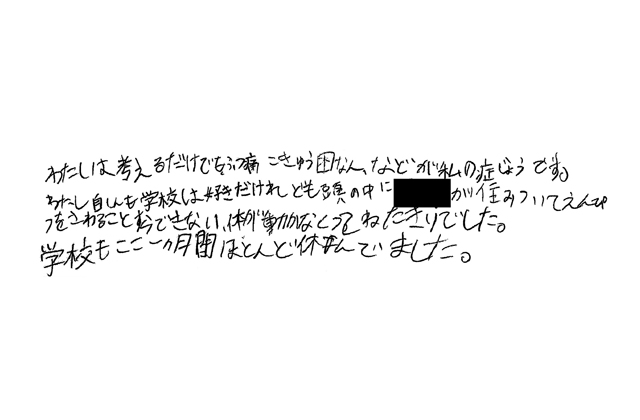 わたしは考えるだけでもふつ痛 こきゅう困なん、などが私の症じょうです。
わたし自しんも学校は好きだけれども頭の中に が住みついてえんぴ
つをさわることもできない、体が動かなくってねたきりでした。
学校もここ一ヵ月間ほとんど休んでいました。